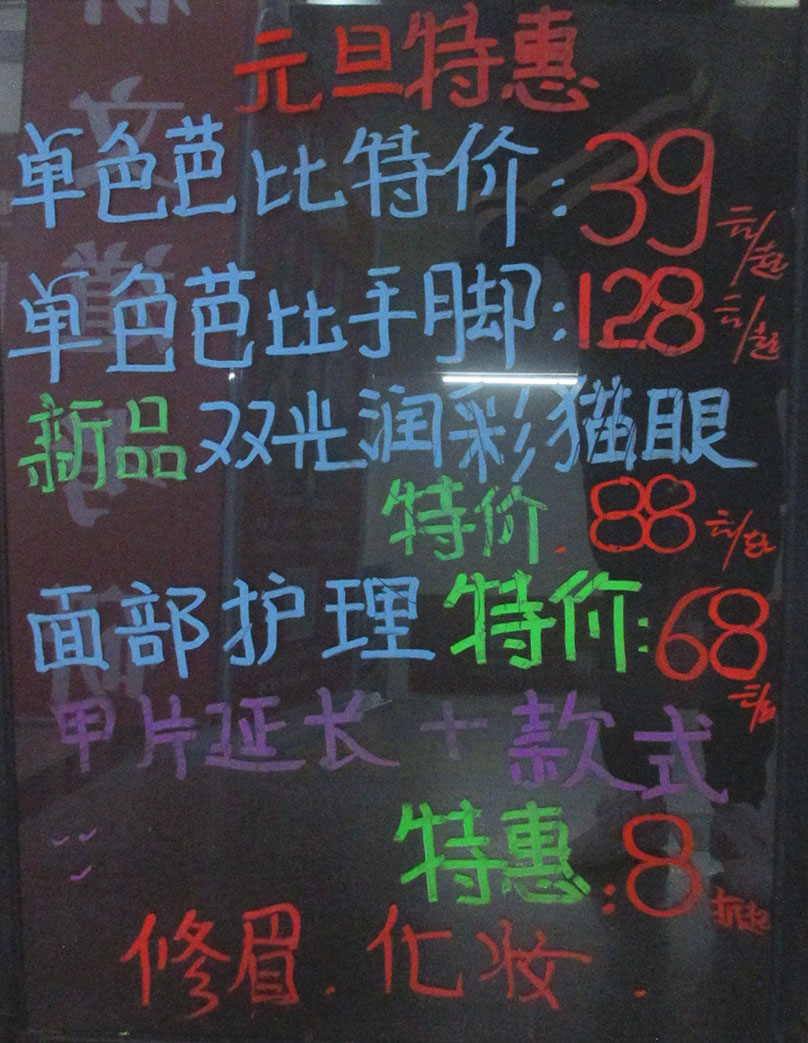 元旦特惠
单色芭比特价:39元/起
单色芭比手脚:128元/起
新品双光润彩猫眼
特价.88元/起
面部护理特价:68
甲片延长+款式
特惠:8折起
修眉.化妆.